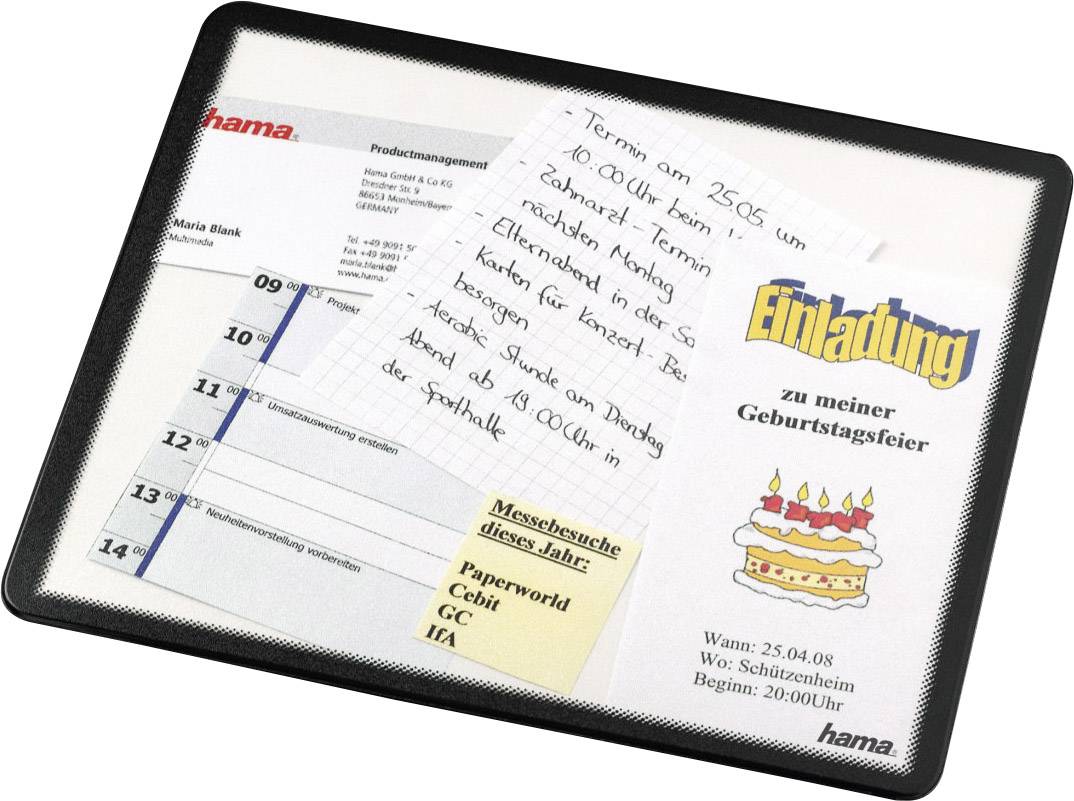 hama®
Productmanagement
Hama GmbH & Co KG
Dresdner Str. 9
86653 Monheim/Bayern
GERMANY
Maria Blank
Multimedia
Tel. +49 9091
Fax +49 9091
maria.blank@h
www.hama.
- Termin am 25.05. um
10:00 Uhr beim
- Zahnarzt-Termin
nächsten Montag
- Elternabend in der
- Karten für Konzert-
besorgen
- Aerobic Stunde am Dienstag
Abend ab 19:00 Uhr in
der Sporthalle
09 00 Projekt
10 00
11 00 Umsatzauswertung erstellen
12 00
13 00 Neuheitenvorstellung vorbereiten
14 00
Messebesuche
dieses Jahr:
Paperworld
Cebit
GC
IfA
Einladung
zu meiner
Geburtstagsfeier
Wann: 25.04.08
Wo: Schützenheim
Beginn: 20:00Uhr
hama®